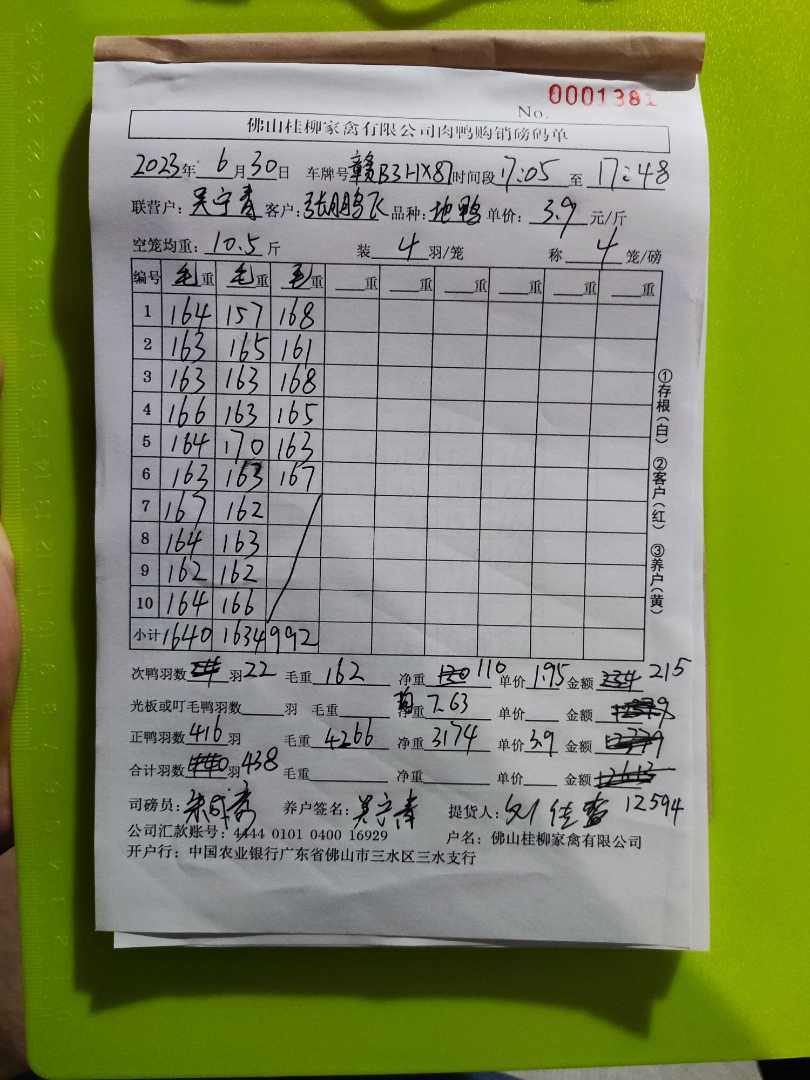 No. 0001381
佛山桂柳家禽有限公司肉鸭购销磅码单
2023年 6月30日 车牌号赣B3HX87时间段17:05 至 17:48
联营户:吴宁青 客户:张鹏飞 品种:地鸭 单价: 3.9 元/斤
空笼均重: 10.5 斤 装 4 羽/笼 称 4 笼/磅
编号 毛重 毛重 毛重 重 重 重 重 重 重
1 164 157 168
2 163 165 161
3 163 163 168
4 166 163 165
5 164 170 163
6 163 163 167
7 167 162
8 164 163
9 162 162
10 164 166
小计 1640 1634 992
次鸭羽数 羽22 毛重 162 净重 120 110 单价 1.95 金额 234 215
光板或叮毛鸭羽数 羽 毛重 均净重 7.63 单价 金额
正鸭羽数 416 羽 毛重 4266 净重 3174 单价 3.9 金额
合计羽数 440 羽 438 毛重 净重 单价 金额
司磅员: 养户签名:吴宁青 提货人: 12594
公司汇款账号:4444 0101 0400 16929 户名:佛山桂柳家禽有限公司
开户行:中国农业银行广东省佛山市三水区三水支行
①存根(白) ②客户(红) ③养户(黄)